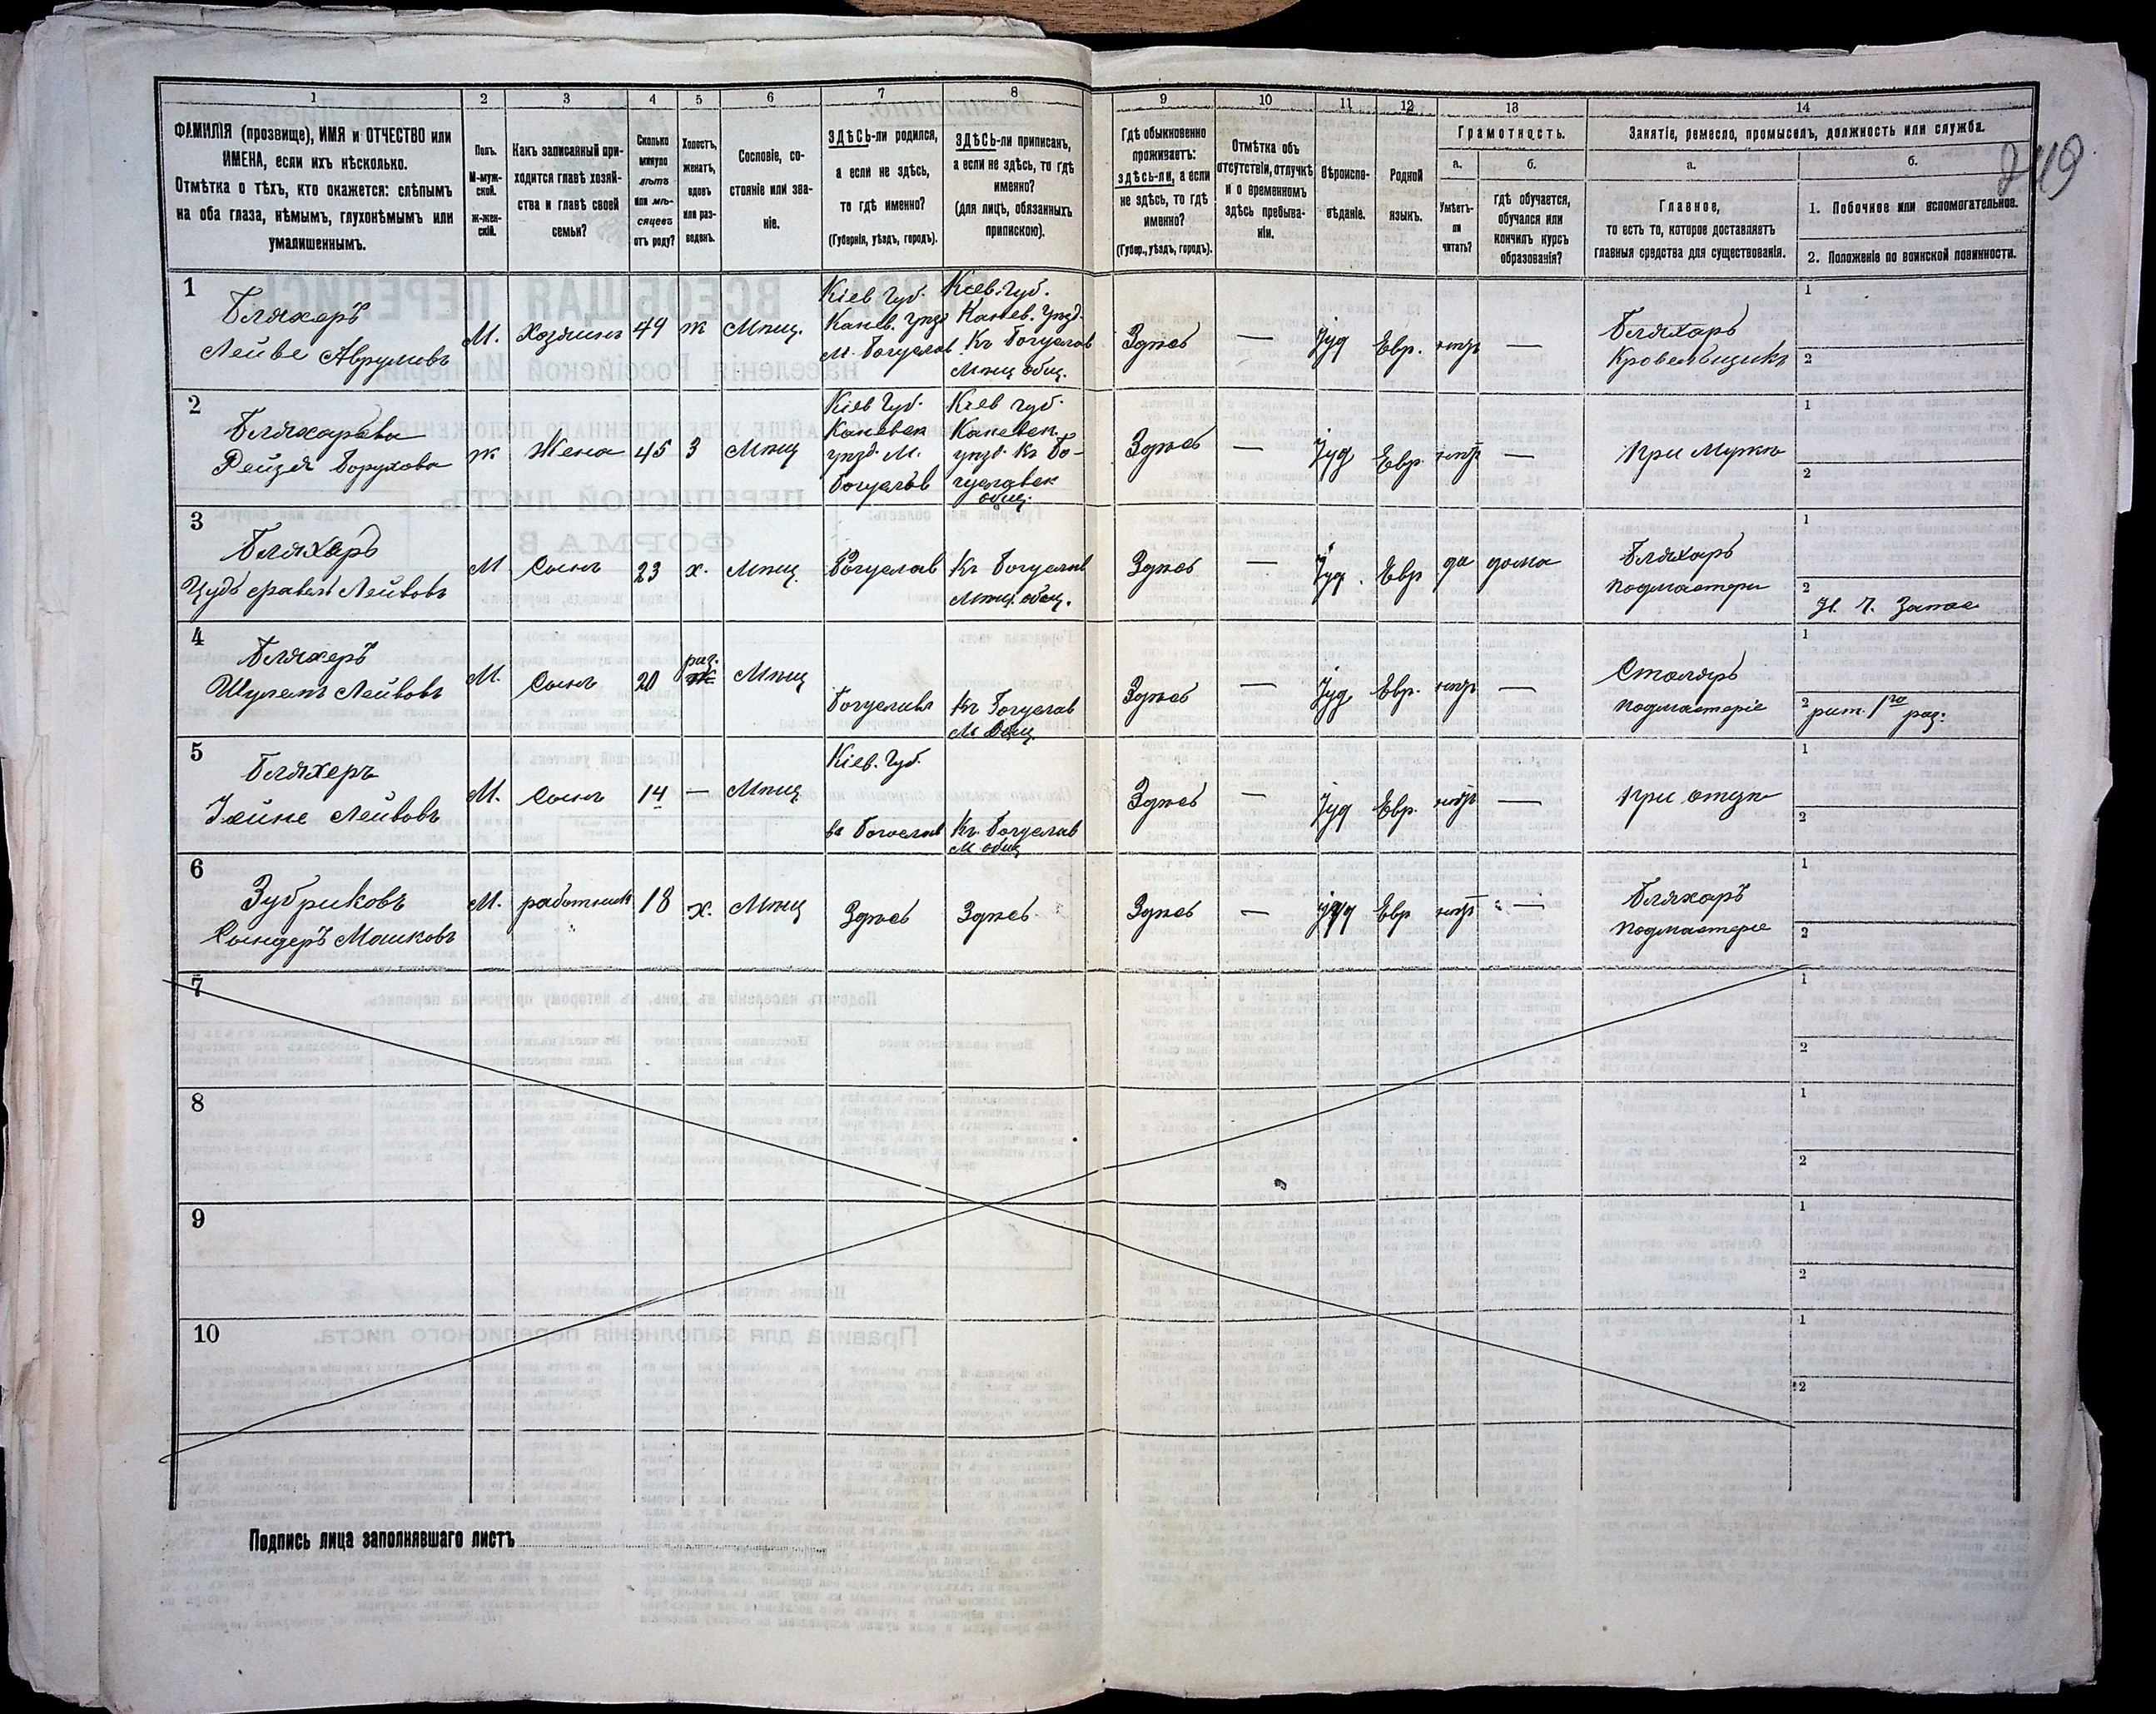 249
1 2 3 4 5 6 7 8 9 10 11 12 13 14
ФАМИЛІЯ (прозвище), ИМЯ и ОТЧЕСТВО или
ИМЕНА, если ихъ нѣсколько.
Отмѣтка о тѣхъ, кто окажется: слѣпымъ
на оба глаза, нѣмымъ, глухонѣмымъ или
умалишеннымъ.
Полъ.
М-муж-
ской.
ж-жен-
скій.
Какъ записанный при-
ходится главѣ хозяй-
ства и главѣ своей
семьи?
Сколько
минуло
лѣтъ
или мѣ-
сяцевъ
отъ роду?
Холостъ,
женатъ,
вдовъ
или раз-
веденъ.
Сословіе, со-
стояніе или зва-
ніе.
ЗДѢСЬ-ли родился,
а если не здѣсь,
то гдѣ именно?
(Губернія, уѣздъ, городъ).
ЗДѢСЬ-ли приписанъ,
а если не здѣсь, то гдѣ
именно?
(для лицъ, обязанныхъ
припискою).
Гдѣ обыкновенно
проживаетъ:
здѣсь-ли, а если
не здѣсь, то гдѣ
именно?
(Губер., уѣздъ, городъ).
Отмѣтка объ
отсутствіи, отлучкѣ
и о временномъ
здѣсь пребыва-
ніи.
Вѣроиспо-
вѣданіе.
Родной
языкъ.
Грамотность.
а.
Умѣетъ-
ли
читать?
б.
гдѣ обучается,
обучался или
кончилъ курсъ
образованія?
Занятіе, ремесло, промыселъ, должность или служба.
а.
Главное,
то есть то, которое доставляетъ
главныя средства для существованія.
б.
1. Побочное или вспомогательное.
2. Положеніе по воинской повинности.
1
Бляхеръ
Лейве Аврумовъ
М.
Хозяинъ
49
ж
Мѣщ.
Кіев Губ.
Канев. Уѣзд
М. Богуслав
Кіев. Губ.
Канев. Уѣзд.
Къ Богуслав
Мѣщ. общ.
Здѣсь
—
Іуд
Евр.
нѣтъ
—
Бляхарь
Кровельщикъ
1
2
2
Бляхарева
Рейзя Борухова
ж
Жена
45
З
Мѣщ
Кіев Губ.
Каневск
уѣзд. М.
Богуслав
Кіев губ.
Каневск.
уѣзд. Къ Бо-
гуславск
общ.
Здѣсь
—
Іуд
Евр.
нѣтъ
—
При Мужѣ
1
2
3
Бляхеръ
Лейвовъ
М
Сынъ
23
х.
Мѣщ.
Богуслав
Къ Богуслав
Мѣщ. общ.
Здѣсь
—
Іуд.
Евр
да
дома
Бляхарь
подмастери
1
2
Запас
4
Бляхеръ
Шулемъ Лейвовъ
М.
Сынъ
20
раз.
Мѣщ
Богуславъ
Къ Богуслав
М. Общ.
Здѣсь
—
Іуд
Евр.
нѣтъ
—
Столяръ
подмастеріе
1
2 рат. 1го раз.
5
Бляхеръ
Хейне Лейвовъ
М.
Сынъ
14
—
Мѣщ
Кіев. Губ.
въ Богослав
Къ Богуслав
М общ
Здѣсь
—
Іуд
Евр.
нѣтъ
—
При отцѣ
1
2
6
Зубриковъ
Сендеръ Машковъ
М.
работникъ
18
х.
Мѣщ
Здѣсь
Здѣсь
Здѣсь
—
Іуд
Евр
нѣтъ
—
Бляхаръ
Подмастеріе
1
2
7
1
2
8
1
2
9
1
2
10
1
2
Подпись лица заполнявшаго листъ